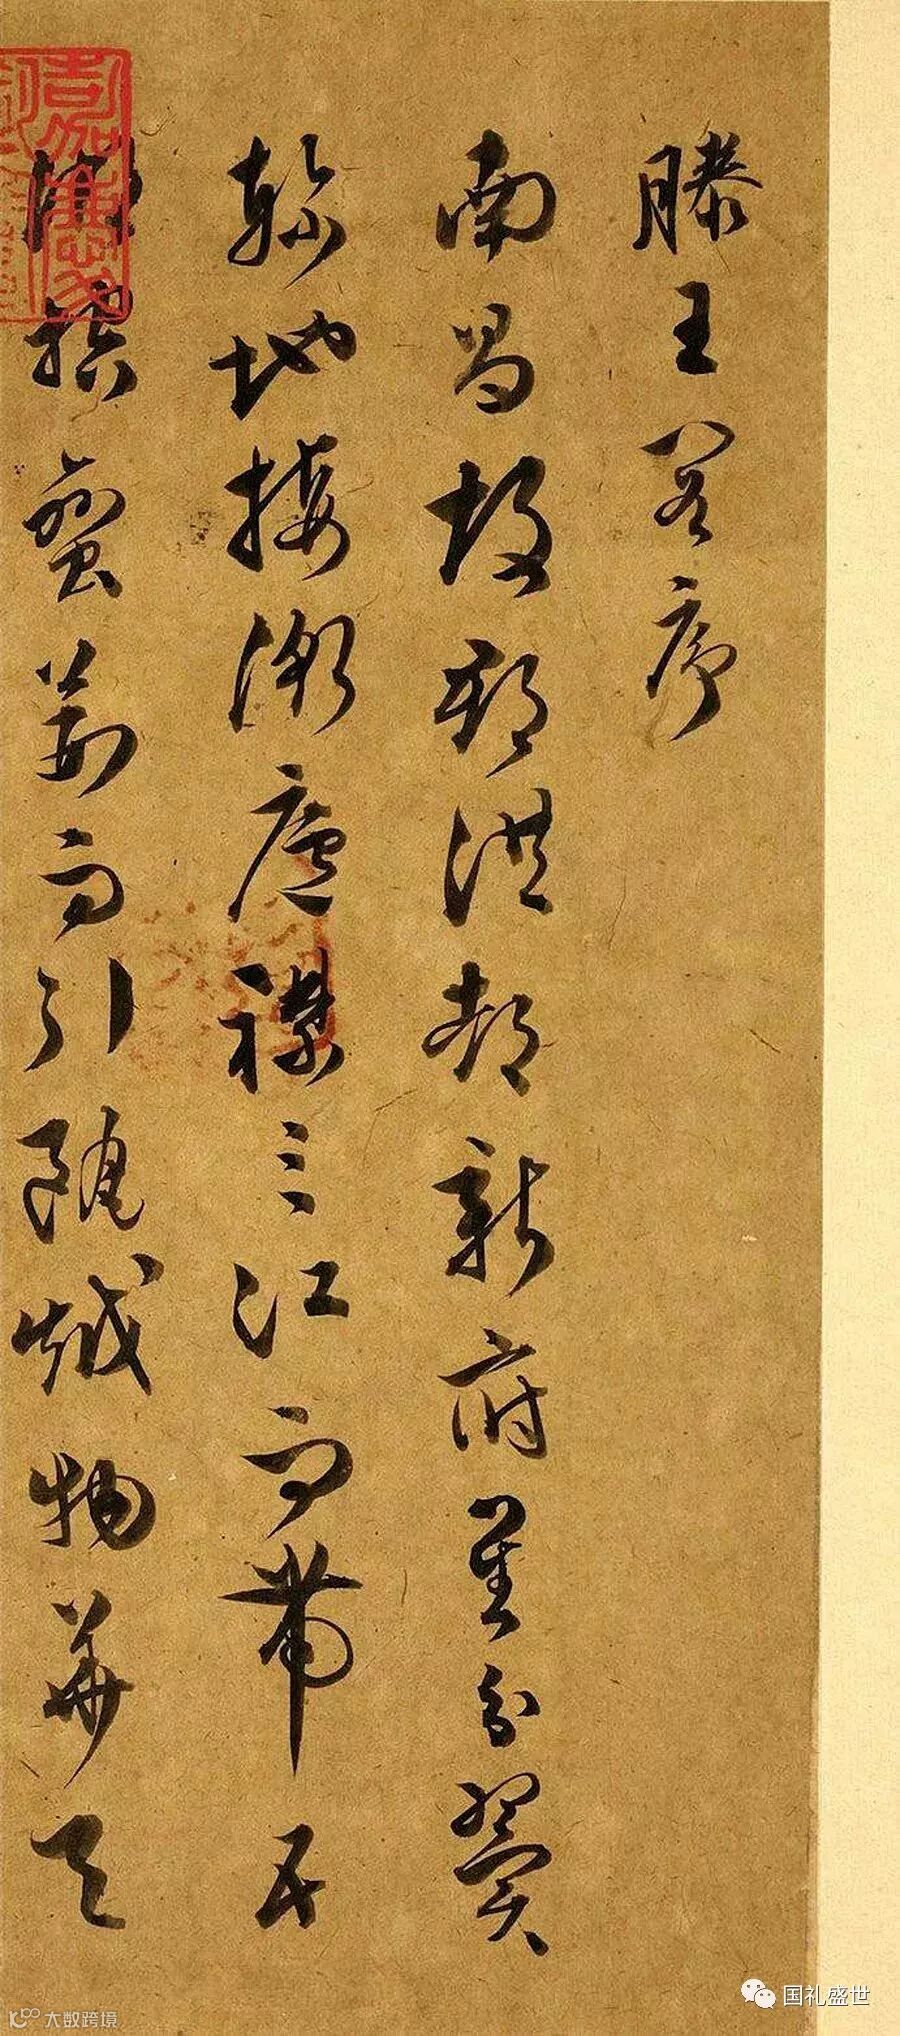 滕王閣序
南昌故郡洪都新府星分翼
軫地接衡廬襟三江而帶五
湖控蠻荊而引甌越物華天
嘉慶
国礼盛世
大数跨境